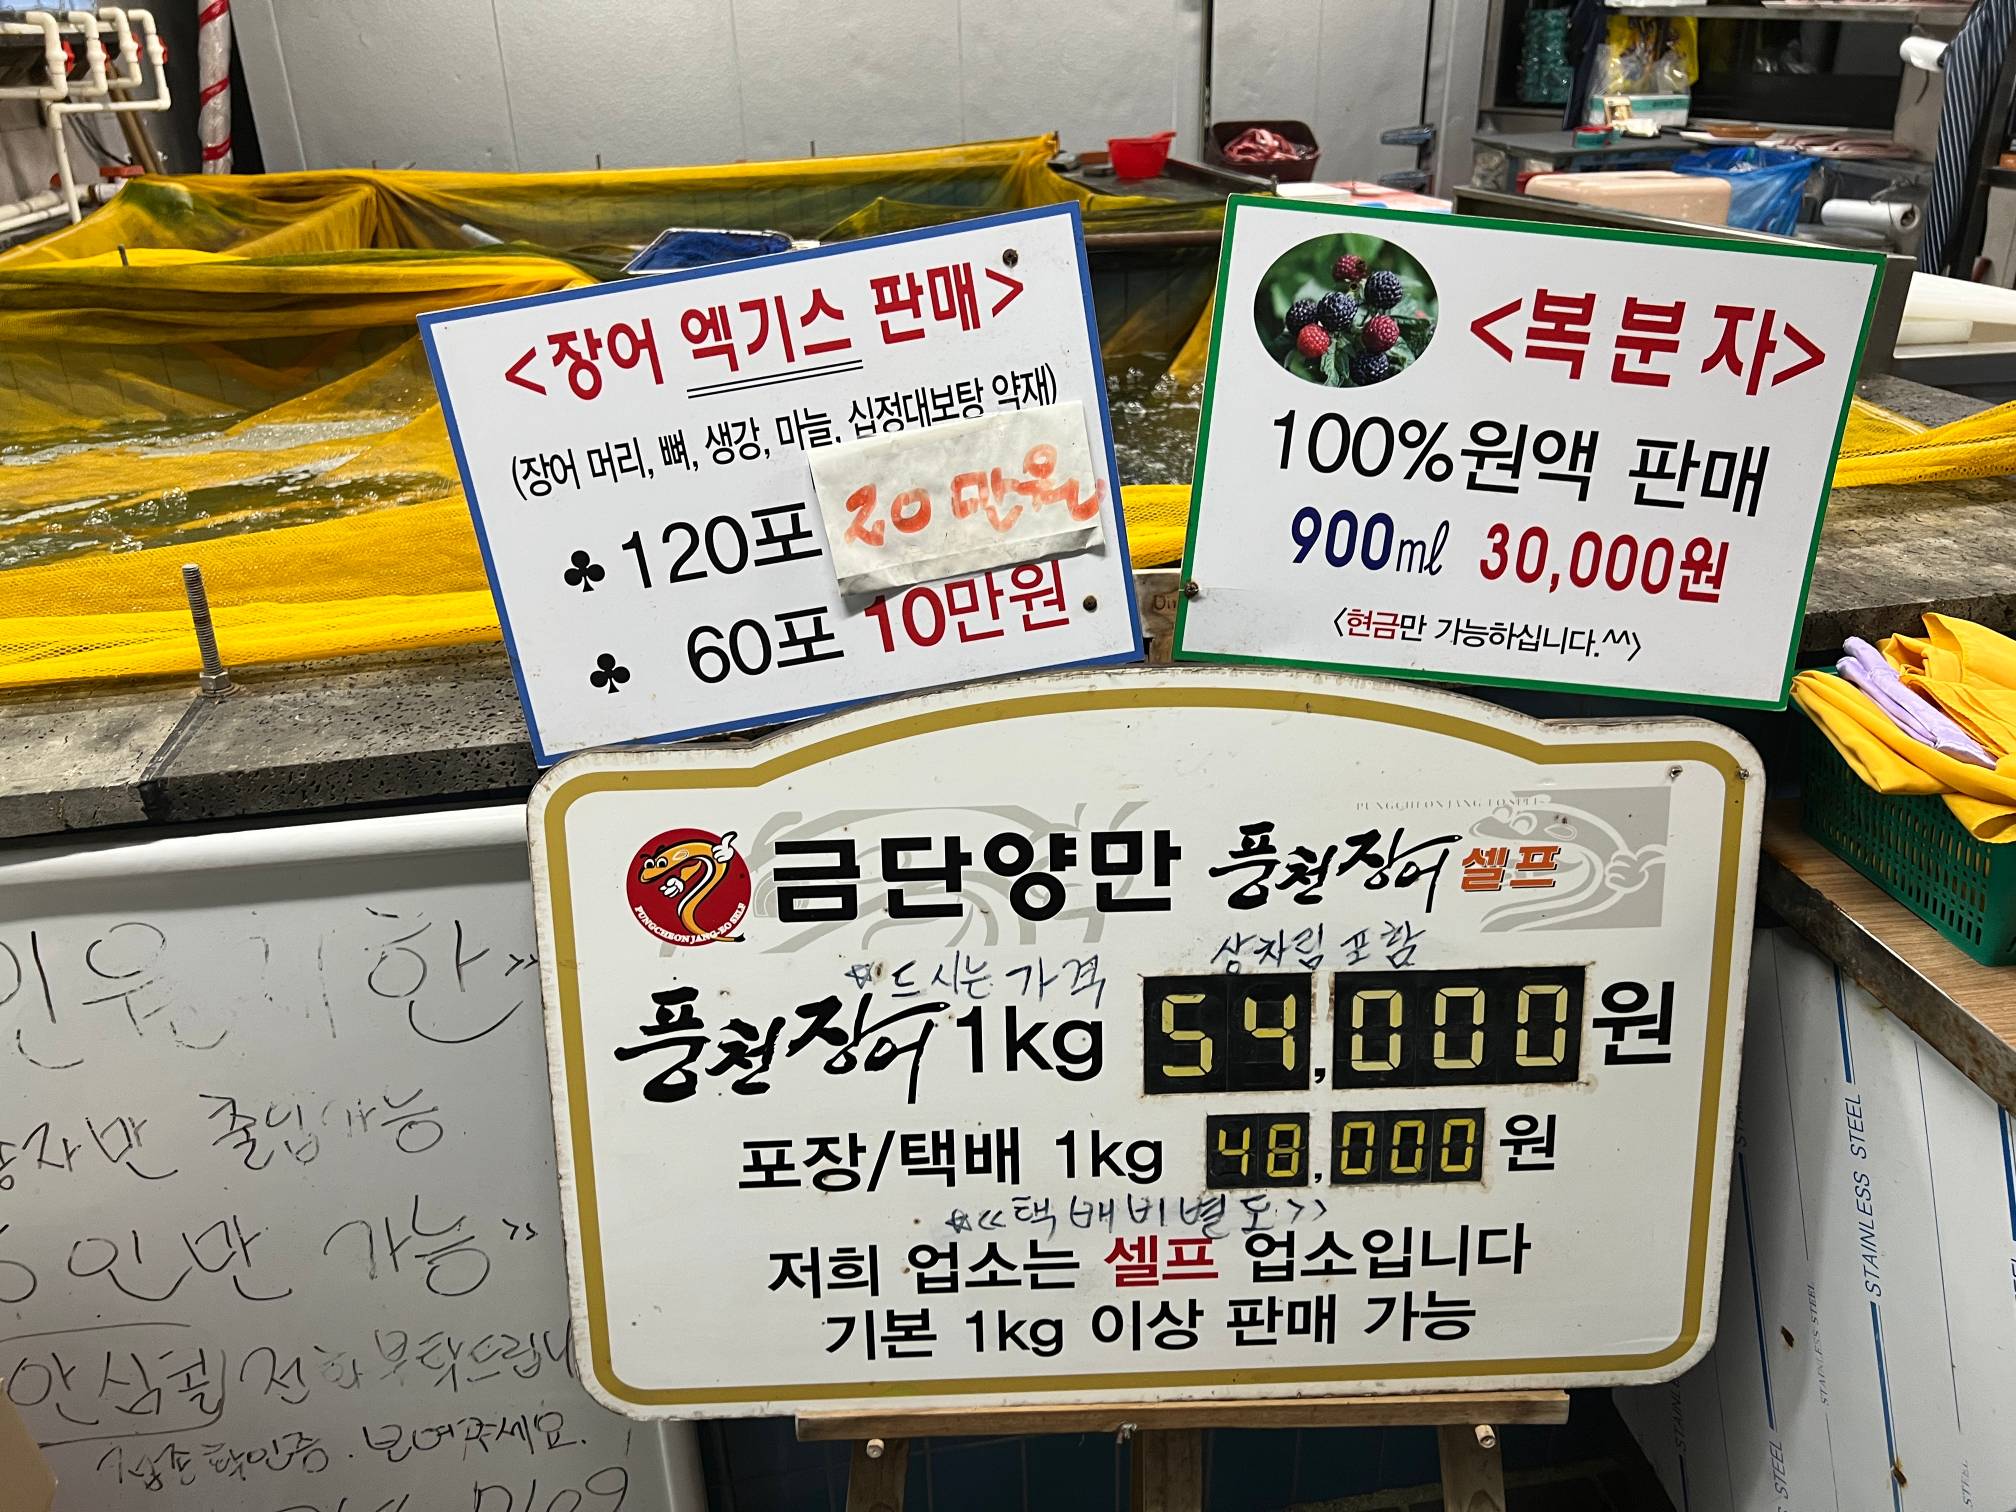 <장어 엑기스 판매>
(장어 머리, 뼈, 생강, 마늘, 십정대보탕 약재)
♣ 120포 20만원
♣ 60포 10만원
<복분자>
100%원액 판매
900㎖ 30,000원
<현금만 가능하십니다.^^>
PUNGCHEON JANG-EO SELF
금단양만 풍천장어 셀프
☆드시는 가격 상차림 포함
풍천장어 1kg 54,000원
포장/택배 1kg 48,000원
☆<<택배비별도>>
저희 업소는 셀프 업소입니다
기본 1kg 이상 판매 가능
인원제한>>
만 출입가능
인만 가능>>
안심콜 전화부탁드립니
접종확인증. 보여주세요.
STAINLESS STEEL
STAINLESS STEEL
STAINLESS STEEL